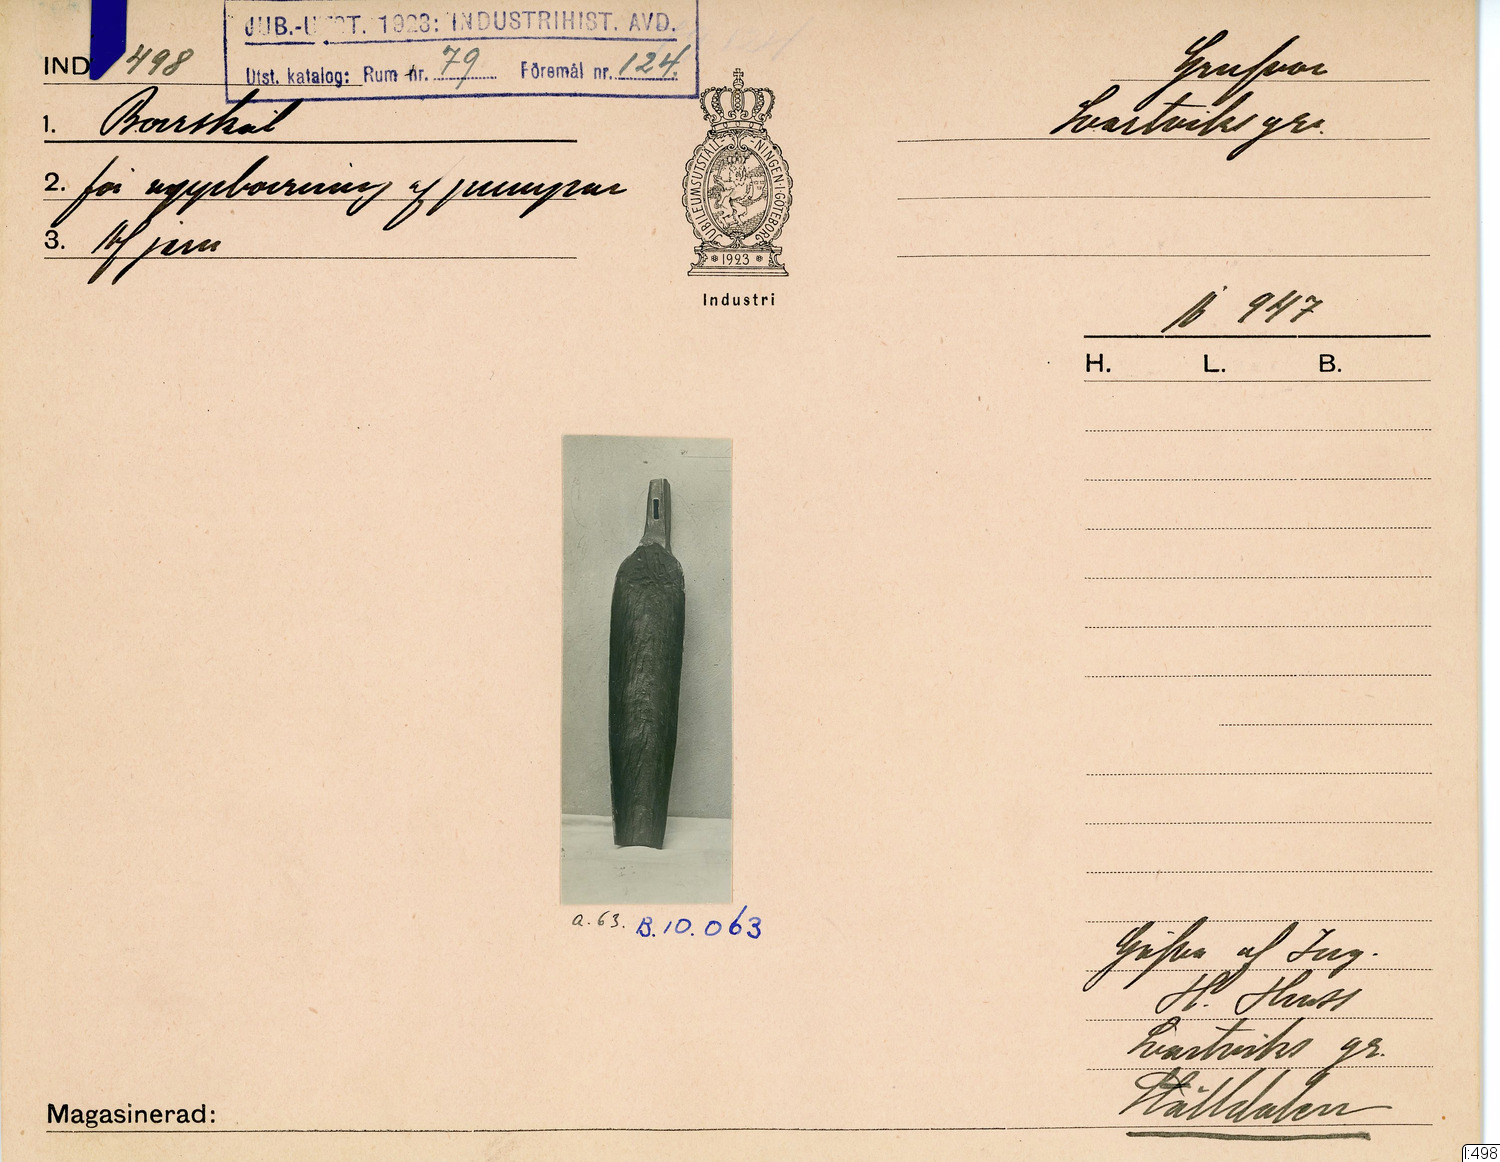 JUB.-UTST. 1923: INDUSTRIHIST. AVD.
Utst. katalog: Rum nr. 79 Föremål nr. 124.
IND 498
1. Borrskål
2. för uppborrning af pumpar
3. Af jern
JUBILEUMSUTSTÄLLNINGEN I GÖTEBORG
1923
Industri
Grufvor
Svartviks gr.
N 947
H. L. B.
a.63. B.10.063
Gåfva af Ing.
H. Huss
Svartviks gr.
Ställdalen
Magasinerad:
I:498